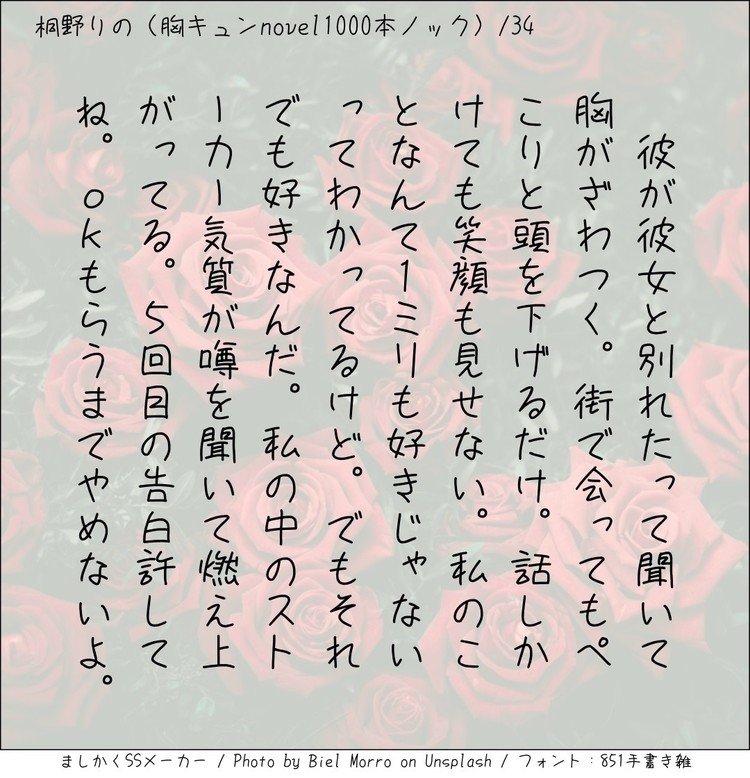 桐野りの（胸キュンnovel1000本ノック）/34
彼が彼女と別れたって聞いて
胸がざわつく。街で会ってもペ
こりと頭を下げるだけ。話しか
けても笑顔も見せない。私のこ
となんて1ミリも好きじゃない
ってわかってるけど。でもそれ
でも好きなんだ。私の中のスト
ーカー気質が噂を聞いて燃え上
がってる。5回目の告白許して
ね。okもらうまでやめないよ。
ましかくSSメーカー / Photo by Biel Morro on Unsplash / フォント：851手書き雑